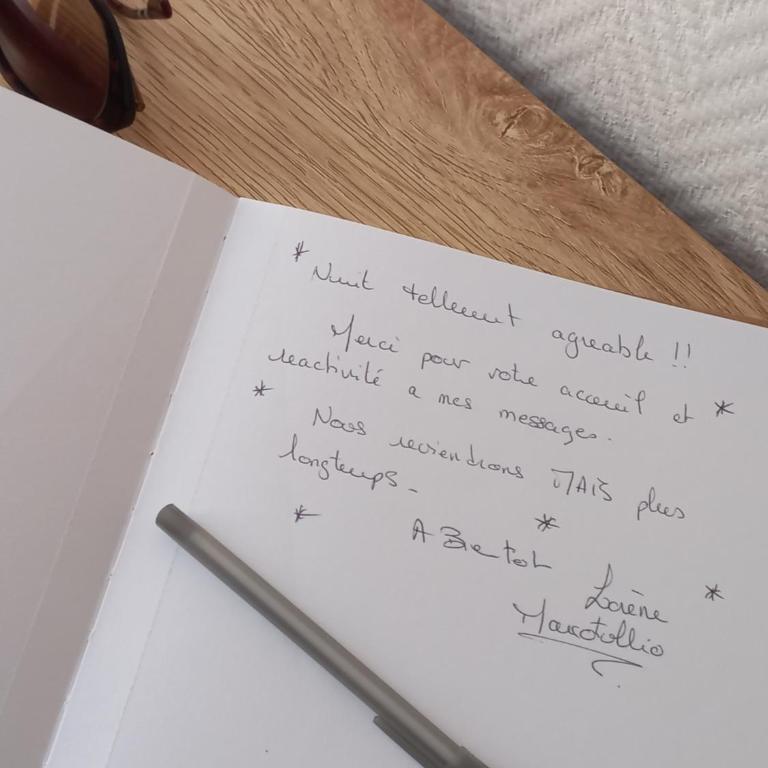 * Nuit tellement agreable !!
Merci pour votre accueil et *
reactivité a mes messages.
* Nous reviendrons MAIS plus
longtemps -
* A Bientot *
Lorène *
Marotollio